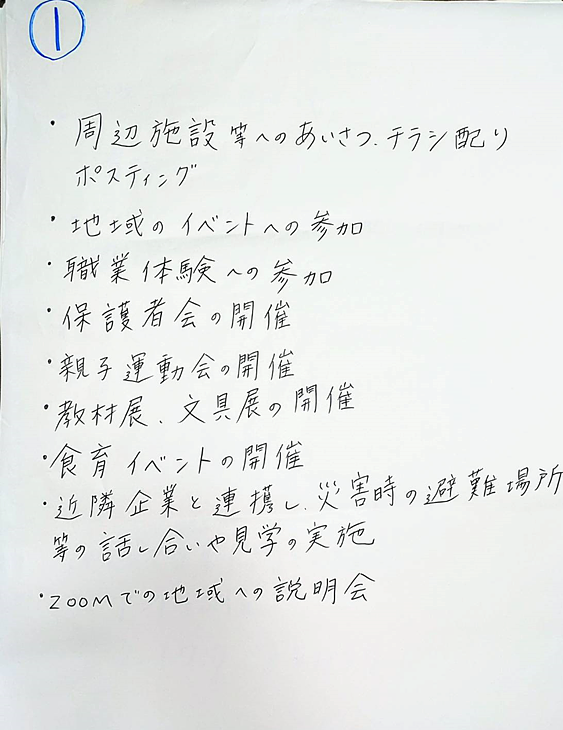 1
・周辺施設等へのあいさつ、チラシ配り
ポスティング
・地域のイベントへの参加
・職業体験への参加
・保護者会の開催
・親子運動会の開催
・教材展、文具展の開催
・食育イベントの開催
・近隣企業と連携し、災害時の避難場所
等の話し合いや見学の実施
・ZOOMでの地域への説明会